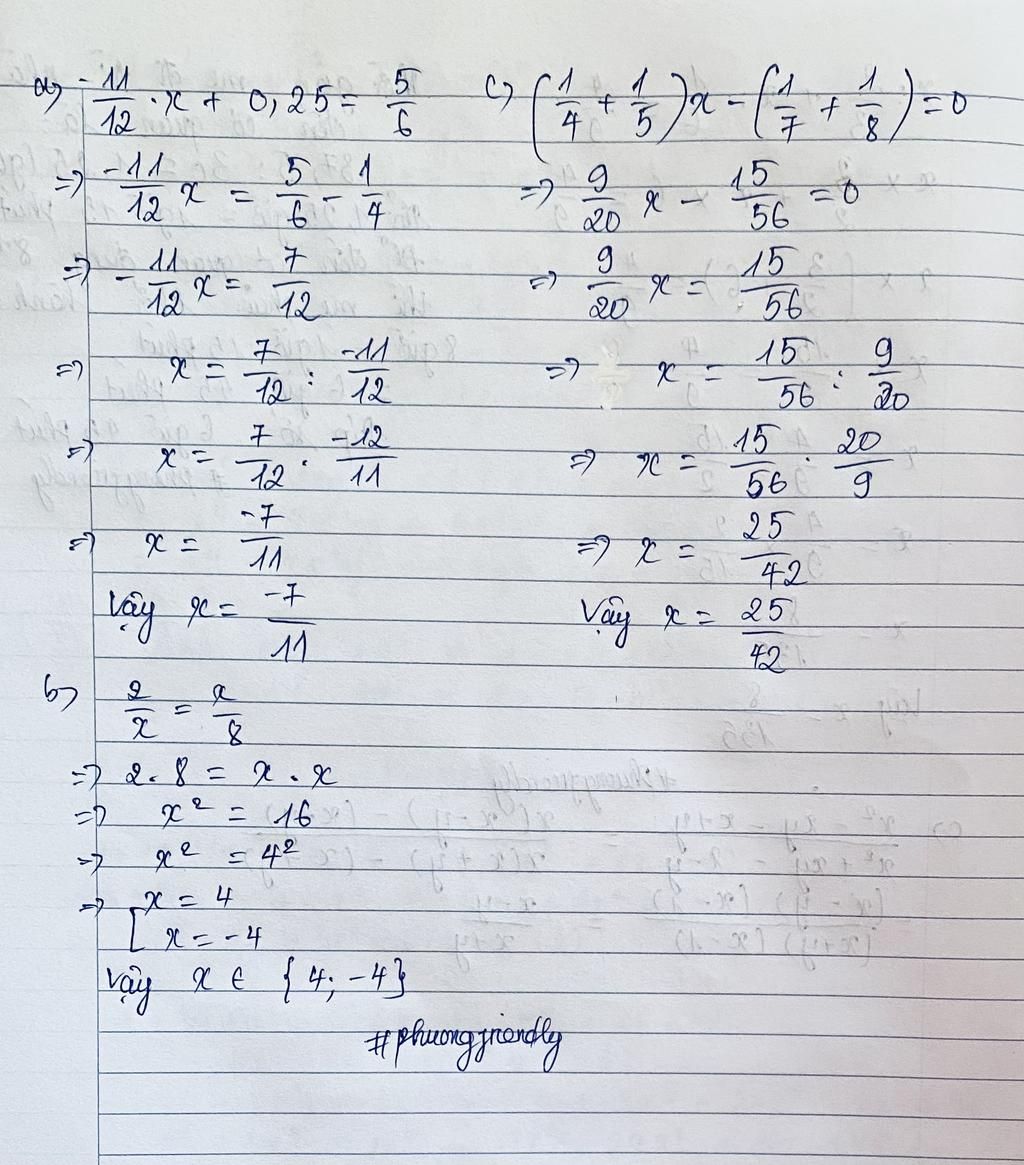 a) -11/12 . x + 0,25 = 5/6
=> -11/12 x = 5/6 - 1/4
=> -11/12 x = 7/12
=> x = 7/12 : -11/12
=> x = 7/12 . -12/11
=> x = -7/11
Vậy x = -7/11
b) 2/x = x/8
=> 2 . 8 = x . x
=> x² = 16
=> x² = 4²
=> [ x = 4
x = -4
Vậy x ∈ {4; -4}
c) (1/4 + 1/5)x - (1/7 + 1/8) = 0
=> 9/20 x - 15/56 = 0
=> 9/20 x = 15/56
=> x = 15/56 : 9/20
=> x = 15/56 . 20/9
=> x = 25/42
Vậy x = 25/42
#phuongfriendly